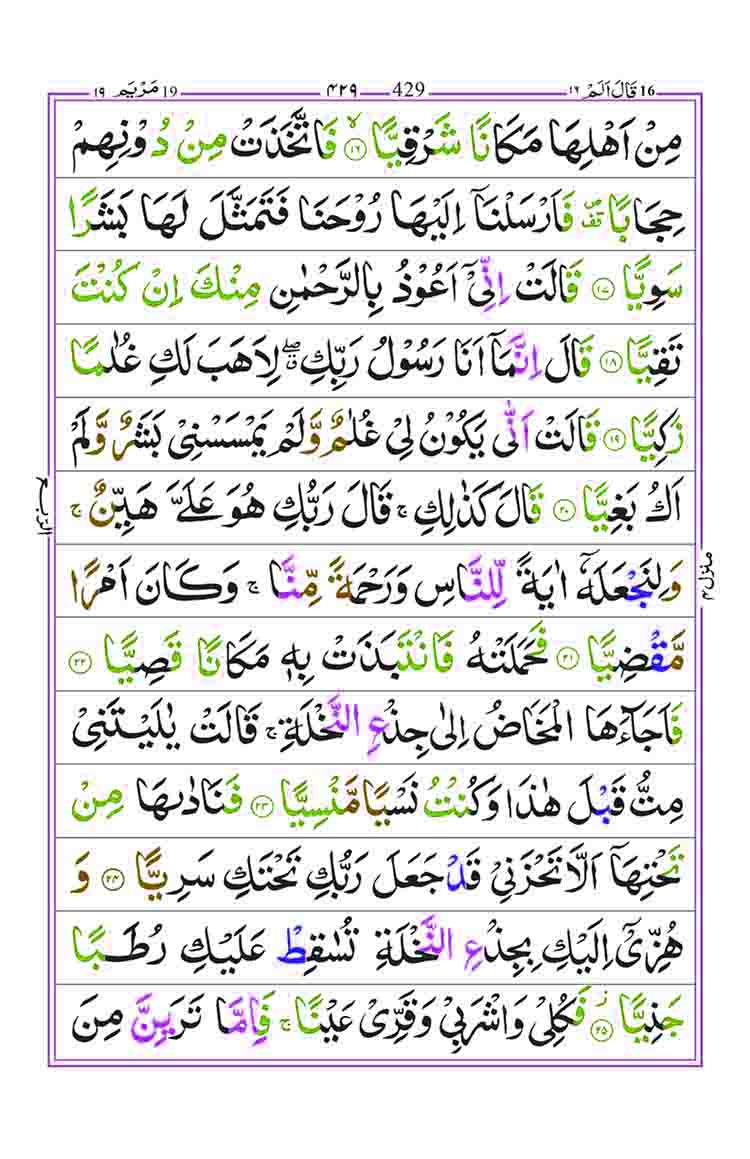 قَالَ اَلَمْ ١٦ 16 429 ٤٢٩ مَرْيَم ١٩ 19
مِنْ اَهْلِهَا مَكَانًا شَرْقِيًّا ۙ‏﴿۱۶﴾ فَاتَّخَذَتْ مِنْ دُوْنِهِمْ
حِجَابًا ࣞ فَاَرْسَلْنَاۤ اِلَيْهَا رُوْحَنَا فَتَمَثَّلَ لَهَا بَشَرًا
سَوِيًّا ﴿۱۷﴾ قَالَتْ اِنِّىْۤ اَعُوْذُ بِالرَّحْمٰنِ مِنْكَ اِنْ كُنْتَ
تَقِيًّا ﴿۱۸﴾ قَالَ اِنَّمَاۤ اَنَا رَسُوْلُ رَبِّكِ ۖ ق لِاَهَبَ لَكِ غُلٰمًا
زَكِيًّا ﴿۱۹﴾ قَالَتْ اَنّٰى يَكُوْنُ لِىْ غُلٰمٌ وَّلَمْ يَمْسَسْنِىْ بَشَرٌ وَّلَمْ
اَكُ بَغِيًّا ﴿۲۰﴾ قَالَ كَذٰلِكِ ۚ قَالَ رَبُّكِ هُوَ عَلَىَّ هَيِّنٌ ۚ
وَلِنَجْعَلَهٗۤ اٰيَةً لِّلنَّاسِ وَرَحْمَةً مِّنَّا ۚ وَكَانَ اَمْرًا
مَّقْضِيًّا ﴿۲۱﴾ فَحَمَلَتْهُ فَانْتَبَذَتْ بِهٖ مَكَانًا قَصِيًّا ﴿۲۲﴾
فَاَجَآءَهَا الْمَخَاضُ اِلٰى جِذْعِ النَّخْلَةِ ۚ قَالَتْ يٰلَيْتَنِىْ
مِتُّ قَبْلَ هٰذَا وَكُنْتُ نَسْيًا مَّنْسِيًّا ﴿۲۳﴾ فَنَادٰٮهَا مِنْ
تَحْتِهَاۤ اَلَّا تَحْزَنِىْ قَدْ جَعَلَ رَبُّكِ تَحْتَكِ سَرِيًّا ﴿۲۴﴾ وَ
هُزِّىْۤ اِلَيْكِ بِجِذْعِ النَّخْلَةِ تُسٰقِطْ عَلَيْكِ رُطَبًا
جَنِيًّا ﴿۲۵﴾ فَكُلِىْ وَاشْرَبِىْ وَقَرِّىْ عَيْنًا ۚ فَاِمَّا تَرَيِنَّ مِنَ
الرّبع
منزل ٤